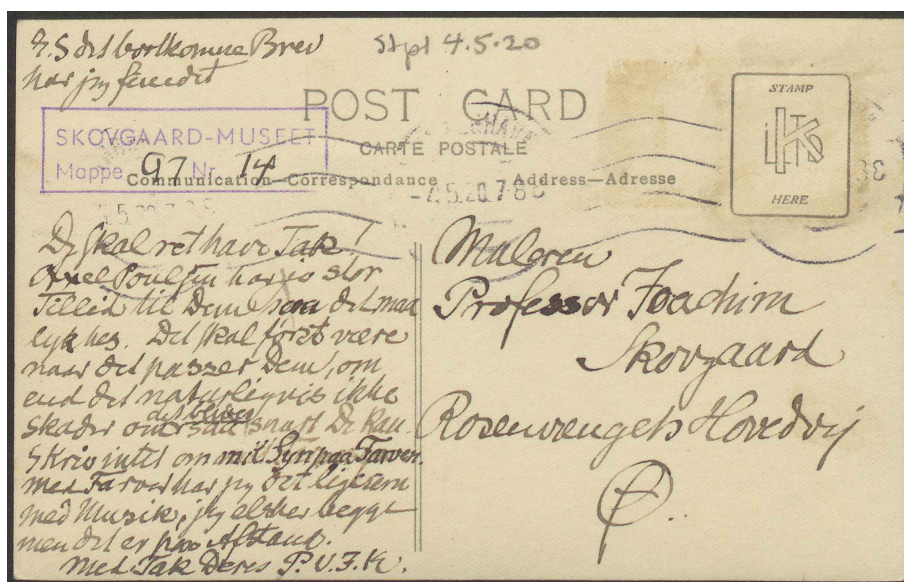 P.S det bortkomne Brev
har jeg fundet
Stpl 4.5.20
POST CARD
CARTE POSTALE
SKOVGAARD-MUSEET
Mappe 97 Nr. 14
Communication—Correspondance
Address—Adresse
STAMP
HERE
-4.5.20.7-8E
De skal ret have Tak!
Axel Poulsen har jo stor
Tillid til Dem, saa det maa
lykkes. Det skal først være
naar det passer Dem, om
end det naturligvis ikke
skader om det bliver saa snart De kan.
Skriv intet om mit Syn paa Farver.
med Farver har jeg det ligesom
med Musik, jeg elsker begge
men det er paa Afstand.
Med Tak Deres P.V.J.K.
Maleren
Professor Joachim
Skovgaard
Rosenvængets Hovedvej
Ø.